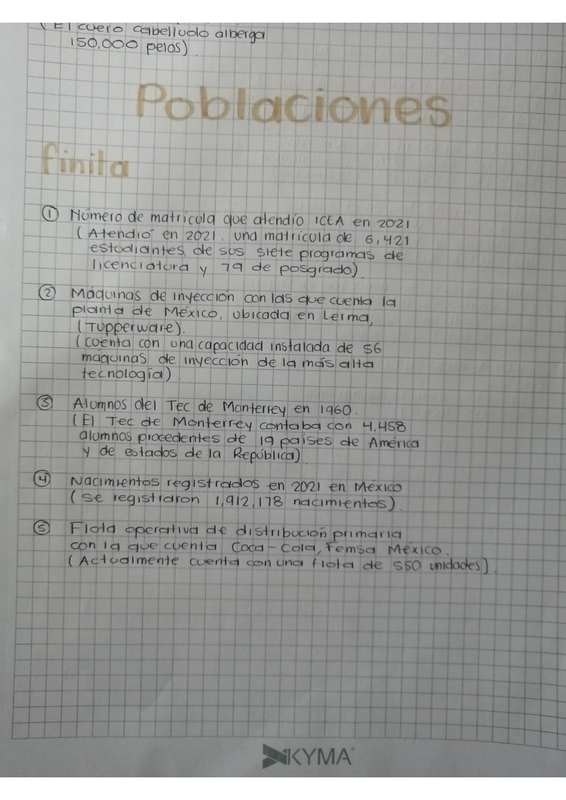 (El cuero cabelludo alberga
150,000 pelos)
Poblaciones
finita
① Número de matrícula que atendió ICEA en 2021
(Atendió en 2021, una matrícula de 6,421
estudiantes, de sus siete programas de
licenciatura y 79 de posgrado).
② Máquinas de inyección con las que cuenta la
planta de México, ubicada en Lerma,
(Tupperware).
(cuenta con una capacidad instalada de 56
máquinas de inyección de la más alta
tecnología)
③ Alumnos del Tec de Monterrey en 1960.
(El Tec de Monterrey contaba con 4,458
alumnos procedentes de 19 países de América
y de estados de la República)
④ Nacimientos registrados en 2021 en México
(se registraron 1,912,178 nacimientos)
⑤ Flota operativa de distribución primaria
con la que cuenta Coca-Cola, Femsa México.
(Actualmente cuenta con una flota de 550 unidades)
KYMA